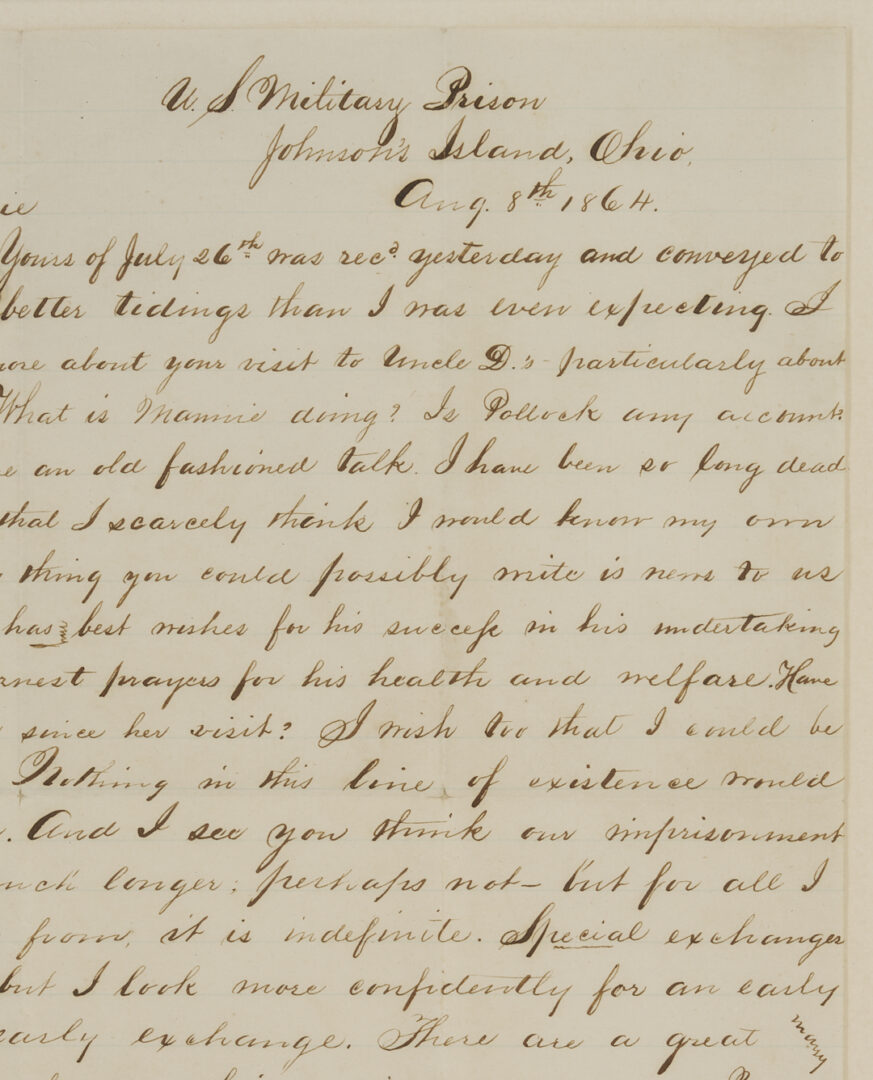 U. S. Military Prison
Johnson's Island, Ohio,
Aug. 8th 1864.
ie
Yours of July 26th was recd. yesterday and conveyed to
better tidings than I was even expecting. I
more about your visit to Uncle D.'s - particularly about
What is Mannie doing? Is Pollock any account.
e an old fashioned talk. I have been so long dead
that I scarcely think I would know my own
thing you could possibly write is news to us
has best wishes for his success in his undertaking
rnest prayers for his health and welfare. Have
since her visit? I wish too that I could be
Nothing in this line of existence would
. And I see you think our imprisonment
uch longer; perhaps not - but for all I
from, it is indefinite. Special exchanges
but I look more confidently for an early
early exchange. There are a great many